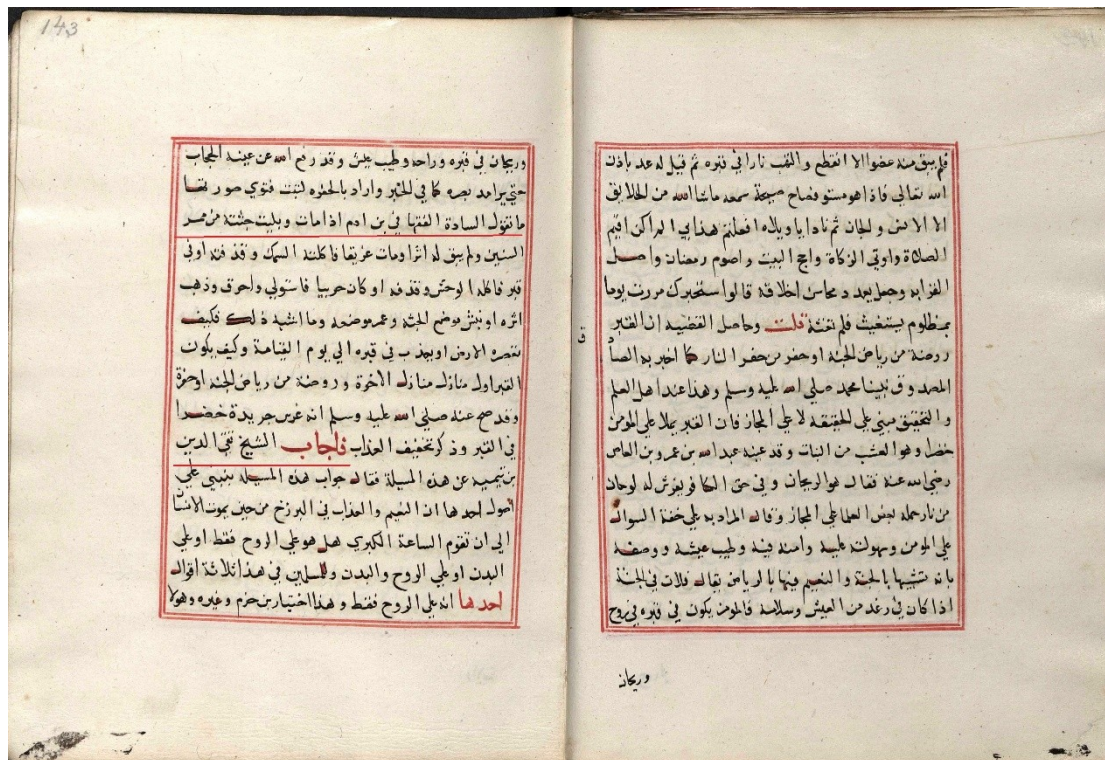 فلم يبق منه عضوا الا انقطع والتهب نارا في قبره ثم قيل له عد باذن
الله تعالي فاذا هو مستو فصاح صيحة سمعه ماشا الله من الخلايق
الا الانس والجان ثم نادا يا ويلاه افعلتم هذا بي الم اكن اقيم
الصلاة واوتي الزكاة واحج البيت واصوم رمضان واصل
القرابه وجعل يعدد محاسن اخلاقه قالوا ستخبرك مررت يوما
بمظلوم يستغيث فلم تغثه قلت وحاصل القضيه ان القبر
روضة من رياض الجنة او حفر من حفر النار كما اخبر به الصا
المصدوق نبينا محمد صلي الله عليه وسلم وهذا عند اهل العلم
والتحقيق مبني علي الحقيقة لا علي المجاز فان القبر يملا علي المومن
خضل وهو العشب من النبات وقد عينه عبد الله بن عمرو بن العاص
رضي الله عنه فقال هو الريحان وفي حق الكافر يفرش له لوحان
من نار حمله بعض العلما علي المجاز وقال المراد به علي خفة السوال
علي المومن وسهولته عليه وامنه فيه وطيب عيشه ووصفه
بانه تشبيها بالجنة والنعيم فيها بالرياض يقال فلان في الجنة
اذا كان في رغد من العيش وسلامة فالمومن يكون في قبره في روح
وريحان
ق
143
وريحان في قبره وراحه وطيب عيش وقد رفع الله عن عينه الحجاب
حتي يرا مد بصره كما في الخبر واراد بالحفره لتبت فتوي صورتها
ما تقول السادة الفقها في بن ادم اذا مات وبليت جثته من ممر
السنين ولم يبق له اثر او مات غريقا فاكلته السمك وقذفته او في
قبر فاكله الوحش وقذفه او كان حربيا فاستولي واحرق وذهب
اثره او نبش موضع الجثه وعمر موضعه وما اشبه ذلك فكيف
تعصره الارض او يعذب في قبره الي يوم القيامة وكيف يكون
القبر اول منازل منازل الاخرة وروضة من رياض الجنة او حفرة
وقد صح عنه صلي الله عليه وسلم انه غرس جريدة خضرا
في القبر وذكر تخفيف العذاب فاجاب الشيخ تقي الدين
بن تيميه عن هذه المسيلة فقال جواب هذه المسيلة ينبني علي
اصول احدها ان النعيم والعذاب في البرزخ من حين يموت الانسا
الي ان تقوم الساعة الكبري هل هو علي الروح فقط او علي
البدن او علي الروح والبدن وللمسلمين في هذا ثلاثة اقوال
احدها انه علي الروح فقط وهذا اختيار بن حزم وغيره وهولا